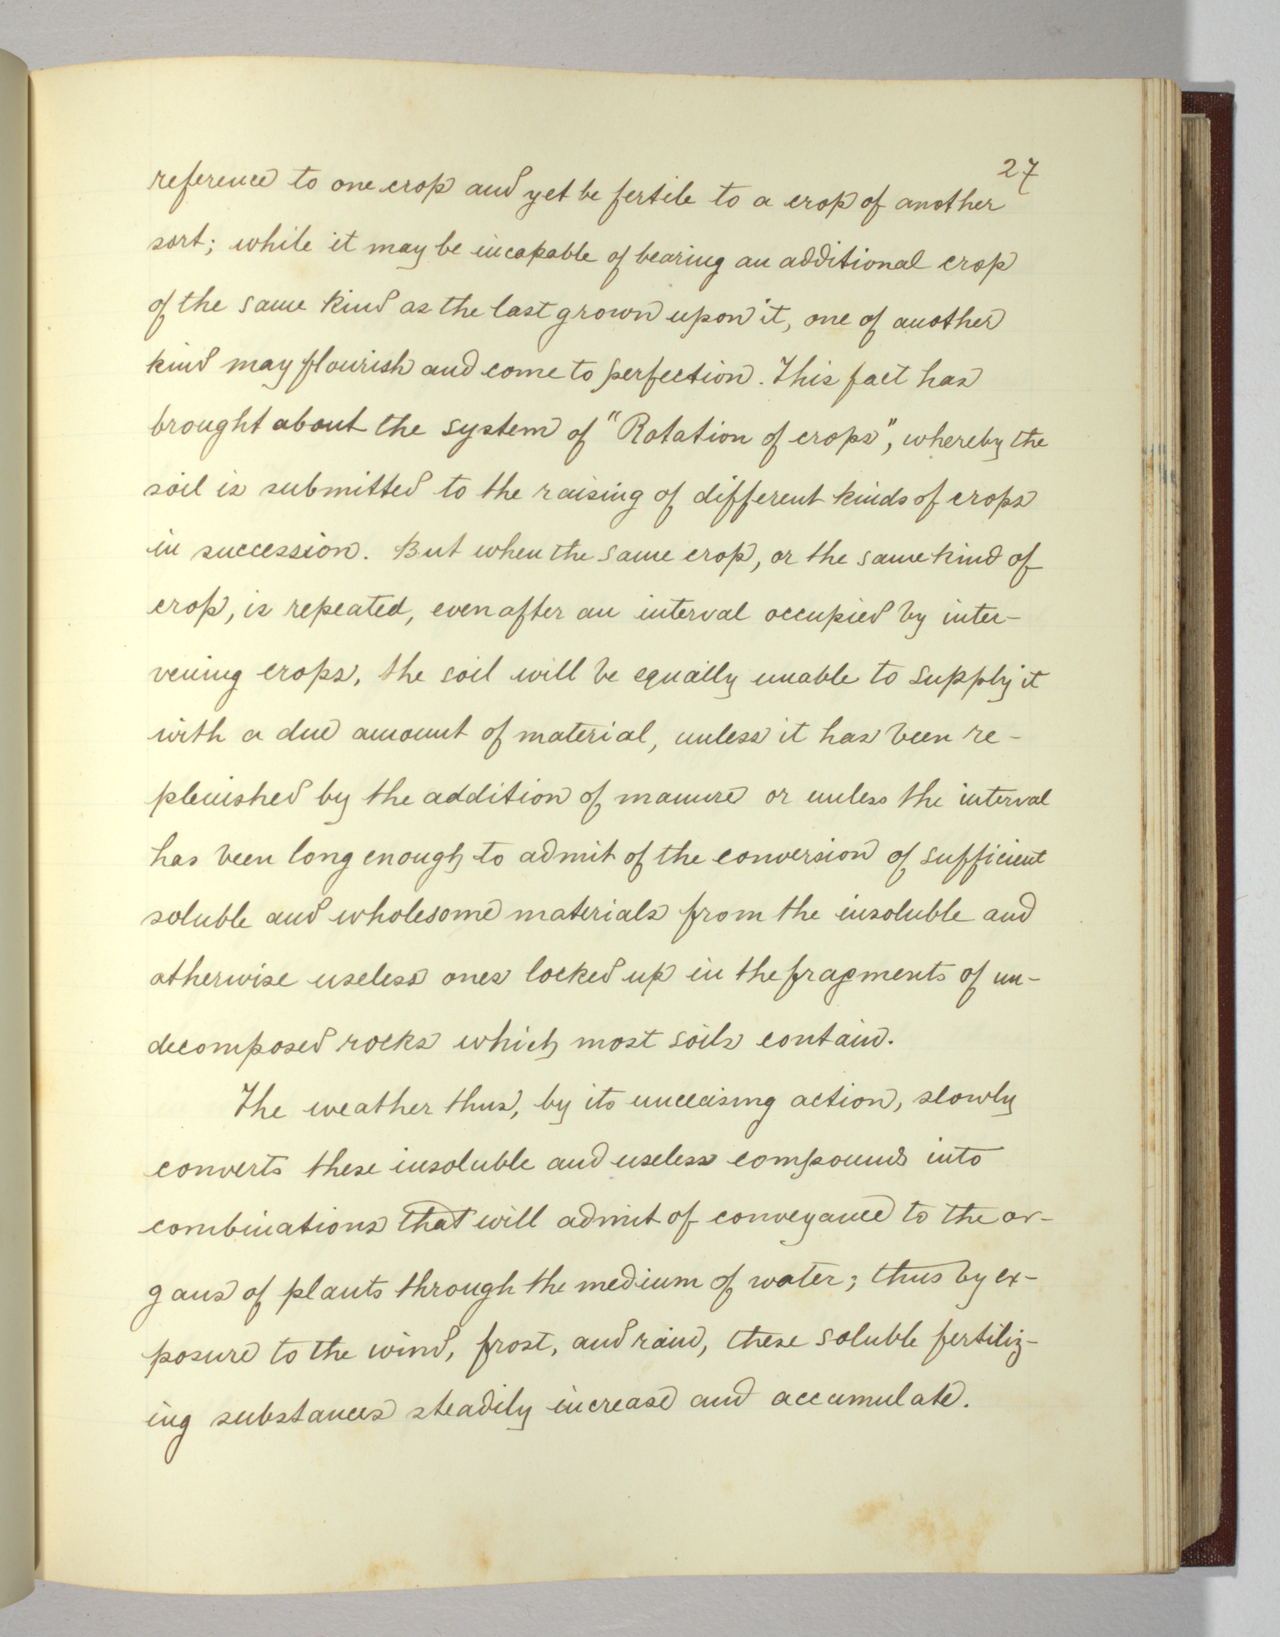 27
reference to one crop and yet be fertile to a crop of another
sort; while it may be incapable of bearing an additional crop
of the same kind as the last grown upon it, one of another
kind may flourish and come to perfection. This fact has
brought about the system of "Rotation of crops", whereby the
soil is submitted to the raising of different kinds of crops
in succession. But when the same crop, or the same kind of
crop, is repeated, even after an interval occupied by inter-
vening crops, the soil will be equally unable to supply it
with a due amount of material, unless it has been re-
plenished by the addition of manure or unless the interval
has been long enough to admit of the conversion of sufficient
soluble and wholesome materials from the insoluble and
otherwise useless ones locked up in the fragments of un-
decomposed rocks which most soils contain.
The weather thus, by its unceasing action, slowly
converts these insoluble and useless compounds into
combinations that will admit of conveyance to the or-
gans of plants through the medium of water; thus by ex-
posure to the wind, frost, and rain, these soluble fertiliz-
ing substances steadily increase and accumulate.